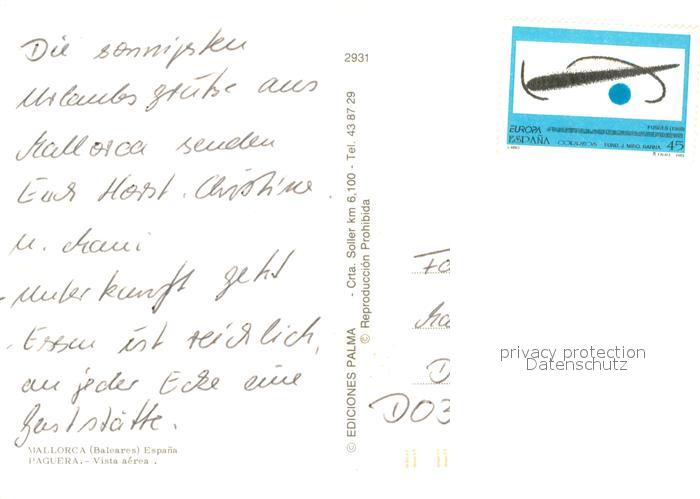 Die sonnigsten
Urlaubsgrüße aus
Mallorca senden
Euch Horst, Christine
u. Mani
Unterkunft geht
Essen ist reichlich,
an jeder Ecke eine
Gaststätte.
MALLORCA (Baleares) España
PAGUERA.- Vista aérea .
2931
© EDICIONES PALMA - Crta. Soller km 6,100 - Tel. 43 87 29
© Reproducción Prohibida
EUROPA
ESPAÑA
45
D03
privacy protection
Datenschutz